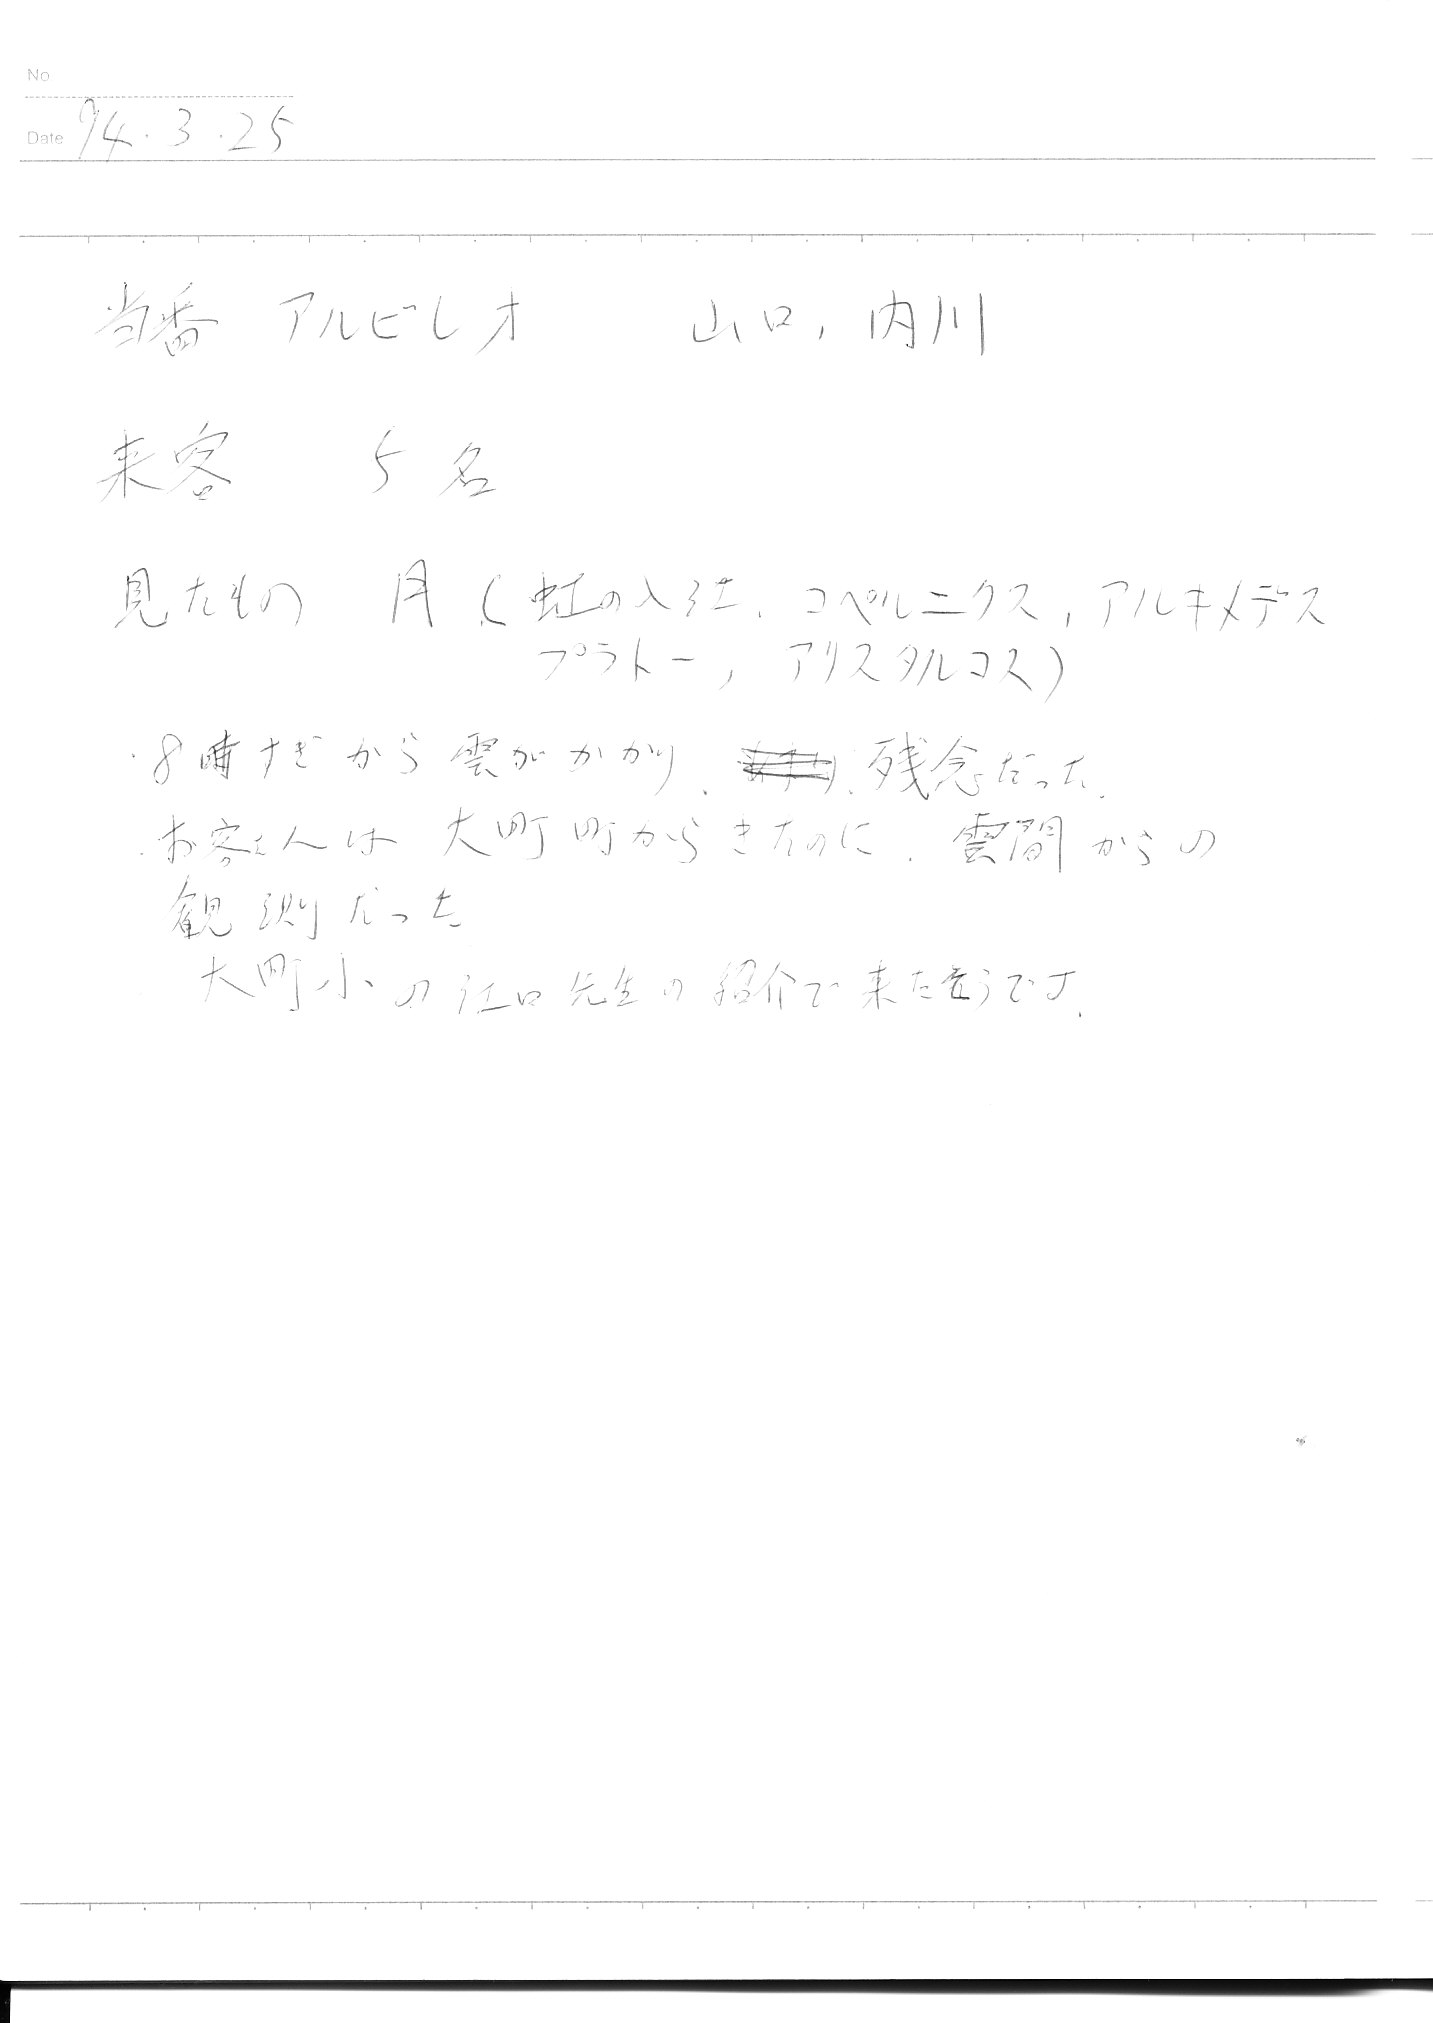 No
Date 94.3.25
当番 アルビレオ 山口, 内川
来客 5名
見たもの 月 (虹の入江、コペルニクス, アルキメデス
プラトー, アリスタルコス)
・8時すぎから雲がかかり、残念だった。
・お客さんは 大町町からきたのに、雲間からの
観測だった
大町小の江口先生の紹介で来たそうです。